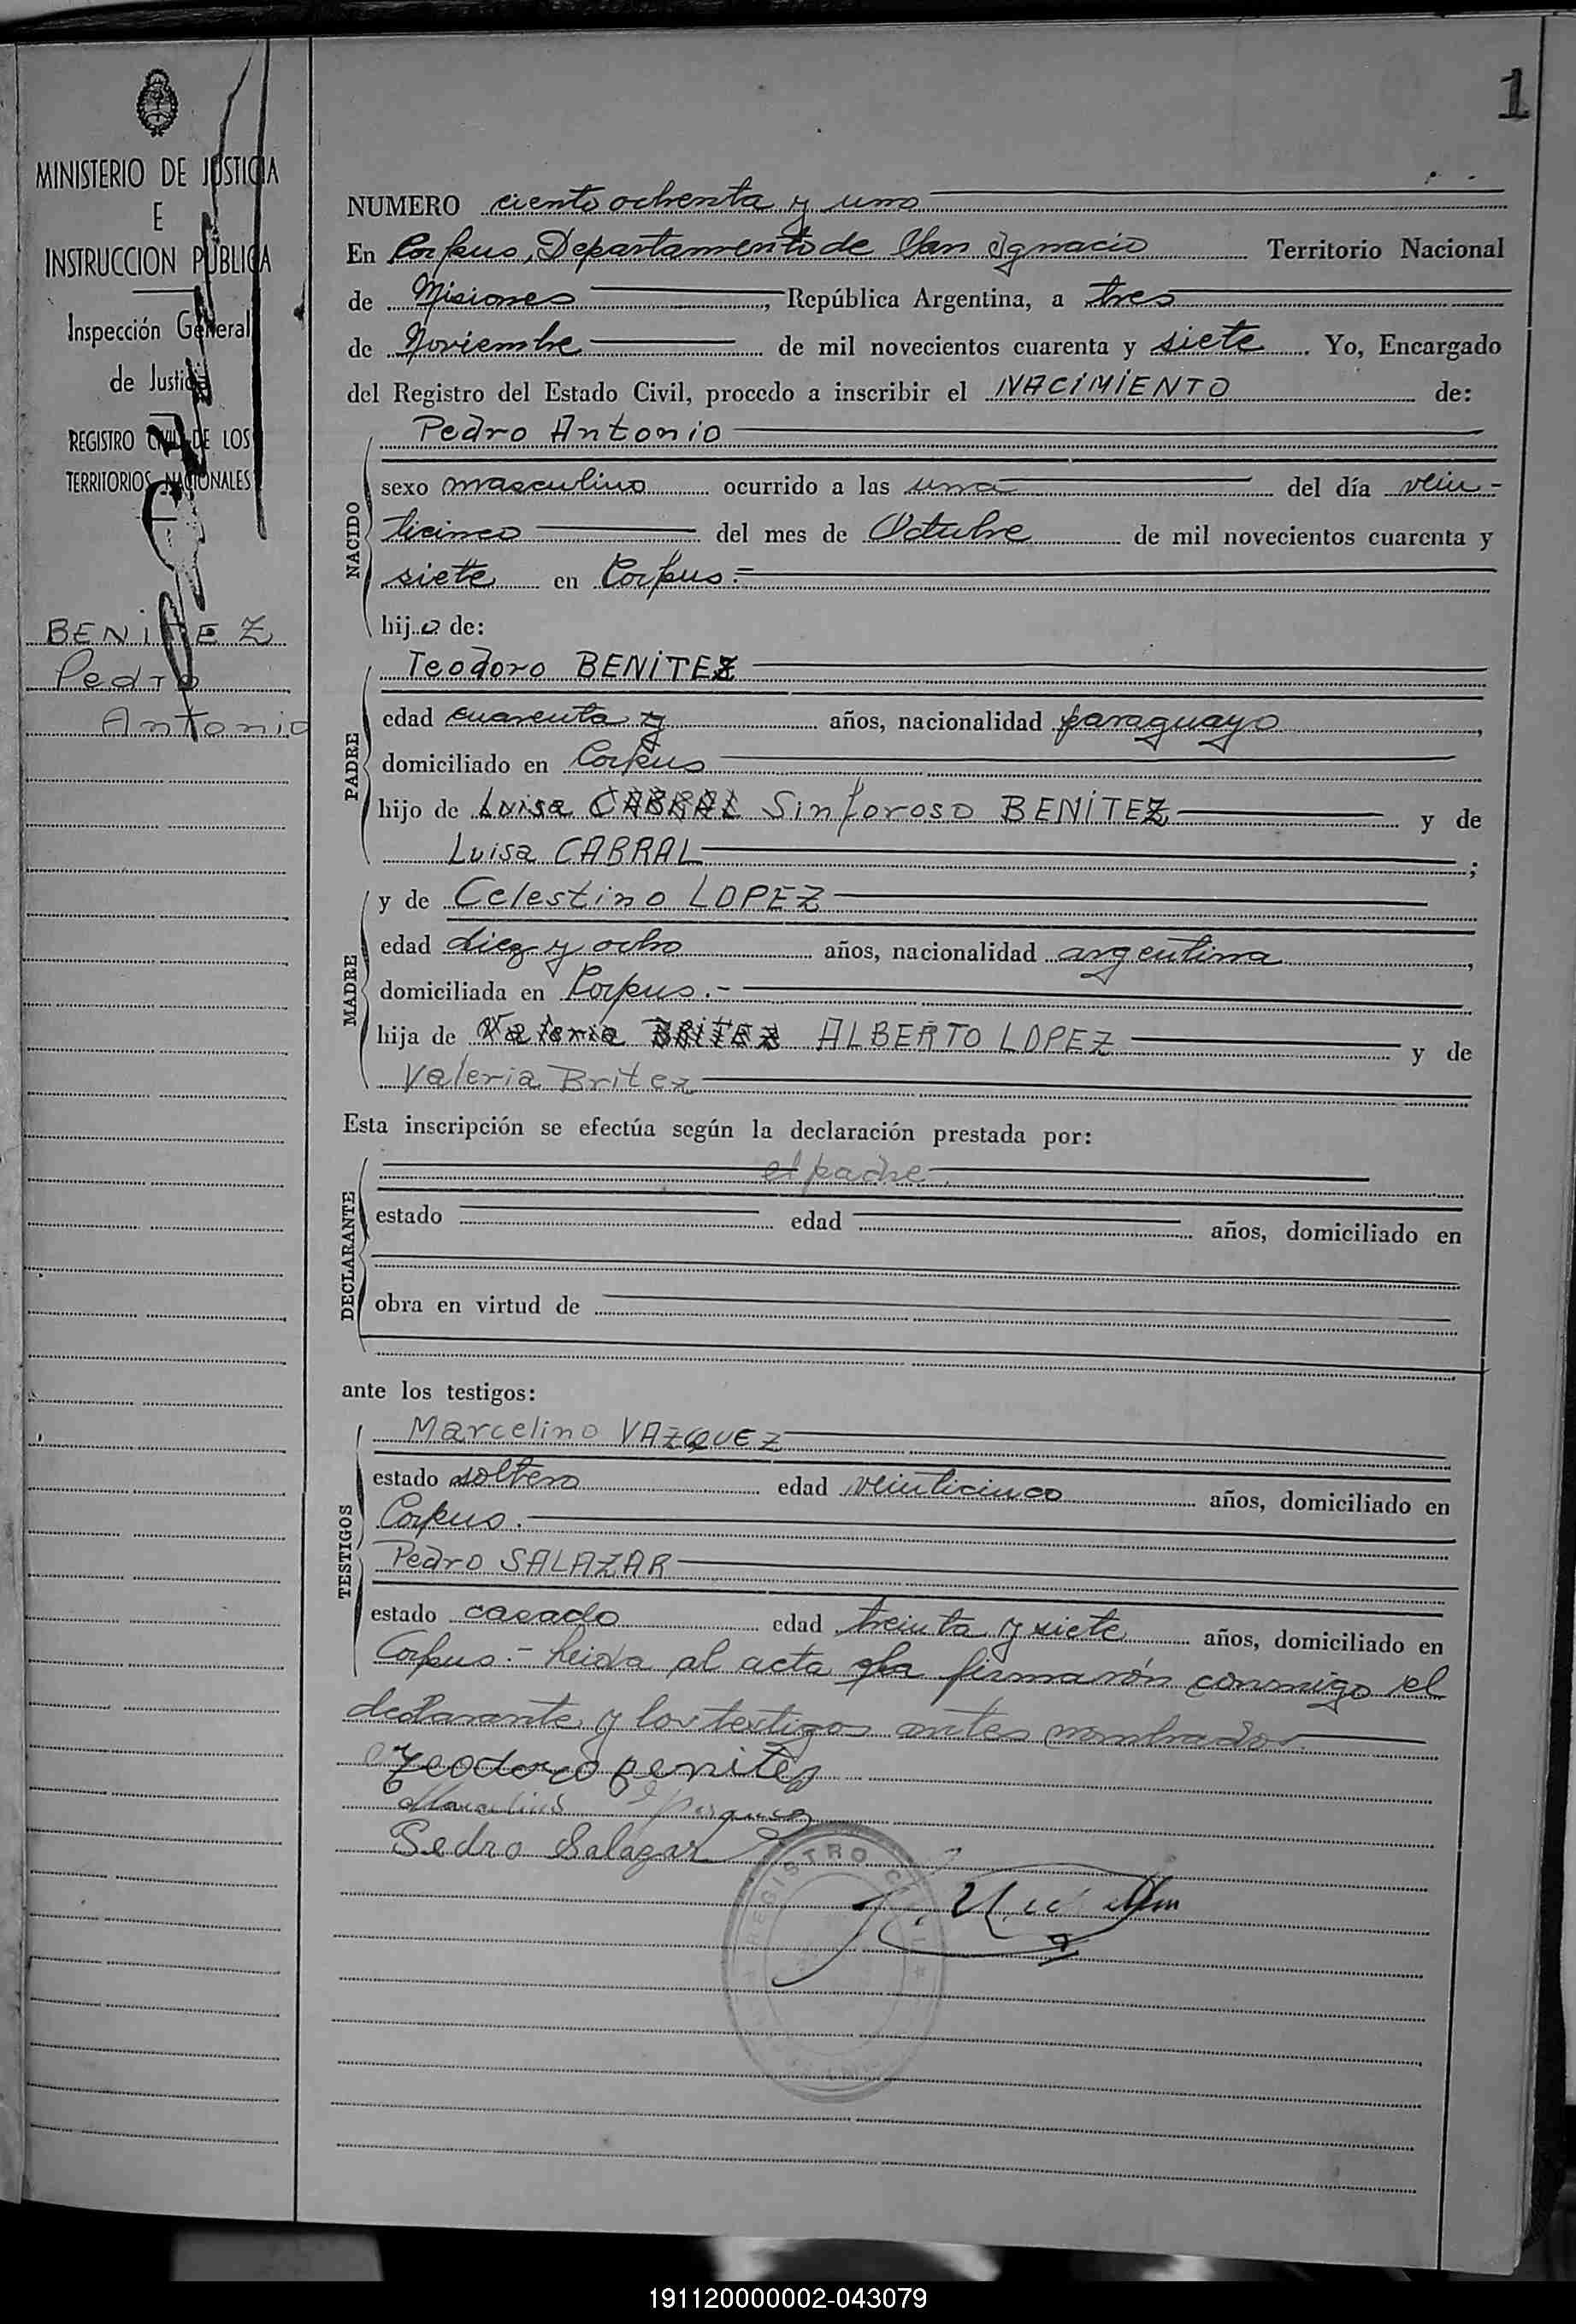 1
MINISTERIO DE JUSTICIA
E
INSTRUCCION PUBLICA
Inspección General
de Justicia
REGISTRO CIVIL DE LOS
TERRITORIOS NACIONALES
BENITEZ
Pedro
Antonio
NUMERO ciento ochenta y uno
En Corpus, Departamento de San Ignacio Territorio Nacional
de Misiones, República Argentina, a tres
de Noviembre de mil novecientos cuarenta y siete. Yo, Encargado
del Registro del Estado Civil, procedo a inscribir el NACIMIENTO de:
NACIDO
Pedro Antonio
sexo masculino ocurrido a las una del día vein-
ticinco del mes de Octubre de mil novecientos cuarenta y
siete en Corpus.=
hijo de:
PADRE
Teodoro BENITEZ
edad cuarenta y años, nacionalidad paraguayo,
domiciliado en Corpus
hijo de Luisa CABRAL Sinforoso BENITEZ y de
Luisa CABRAL;
MADRE
y de Celestino LOPEZ
edad diez y ocho años, nacionalidad argentina,
domiciliada en Corpus.-
hija de Valeria BRITEZ ALBERTO LOPEZ y de
Valeria Britez
Esta inscripción se efectúa según la declaración prestada por:
DECLARANTE
el padre.
estado edad años, domiciliado en
obra en virtud de
ante los testigos:
TESTIGOS
Marcelino VAZQUEZ
estado soltero edad veinticinco años, domiciliado en
Corpus.
Pedro SALAZAR
estado casado edad treinta y siete años, domiciliado en
Corpus.- Leida al acta la firmarón conmigo el
declarante y los testigos antes nombrados
Teodoro Benitez
Marcelino
Pedro Salazar
REGISTRO CIVIL
191120000002-043079